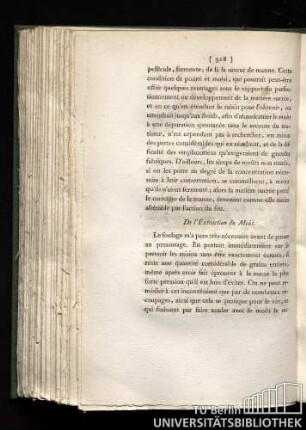 ( 528 )
pellicule, fermente; de là la saveur de manne. Cette
condition de pourri et moisi, qui pourroit peut-être
offrir quelques avantages sous le rapport du perfec-
tionnement ou développement de la matière sucrée,
et en ce qu'en attachant le raisin pour l'obtenir, on
attendroit jusqu'aux froids, afin d'abandonner le moût
à une dépuration spontanée sans le secours du mu-
tisme, n'est cependant pas à rechercher, en raison
des pertes considérables qui en résultent, et de la dif-
ficulté des emplacemens qu'exigeroient de grandes
fabriques. D'ailleurs, les sirops de moûts non mutés,
si on les porte au degré de la concentration néces-
saire à leur conservation, se caramélisent, à moins
qu'ils n'aient fermenté; alors la matière sucrée perd
le de la manne, devenant comme elle moins
altérable par l'action du feu.
De l'Extraction du Moût.
Le foulage m'a paru très-nécessaire avant de passer
au pressurage. En portant immédiatement sur le
pressoir les raisins sans être exactement écrasés, il
reste une quantité considérable de grains entiers,
même après avoir fait éprouver à la masse la plus
forte pression qu'il est bon d'éviter. On ne peut re-
médier à cet inconvénient que par de nombreux re-
coupages, ainsi que cela se pratique pour le vin, et
qui finissent par faire couler avec le moût le
TU Berlin
UNIVERSITÄTSBIBLIOTHEK